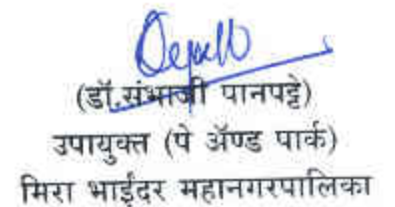 (डॉ.संभाजी पानपट्टे)
उपायुक्त (पे ॲण्ड पार्क)
मिरा भाईंदर महानगरपालिका